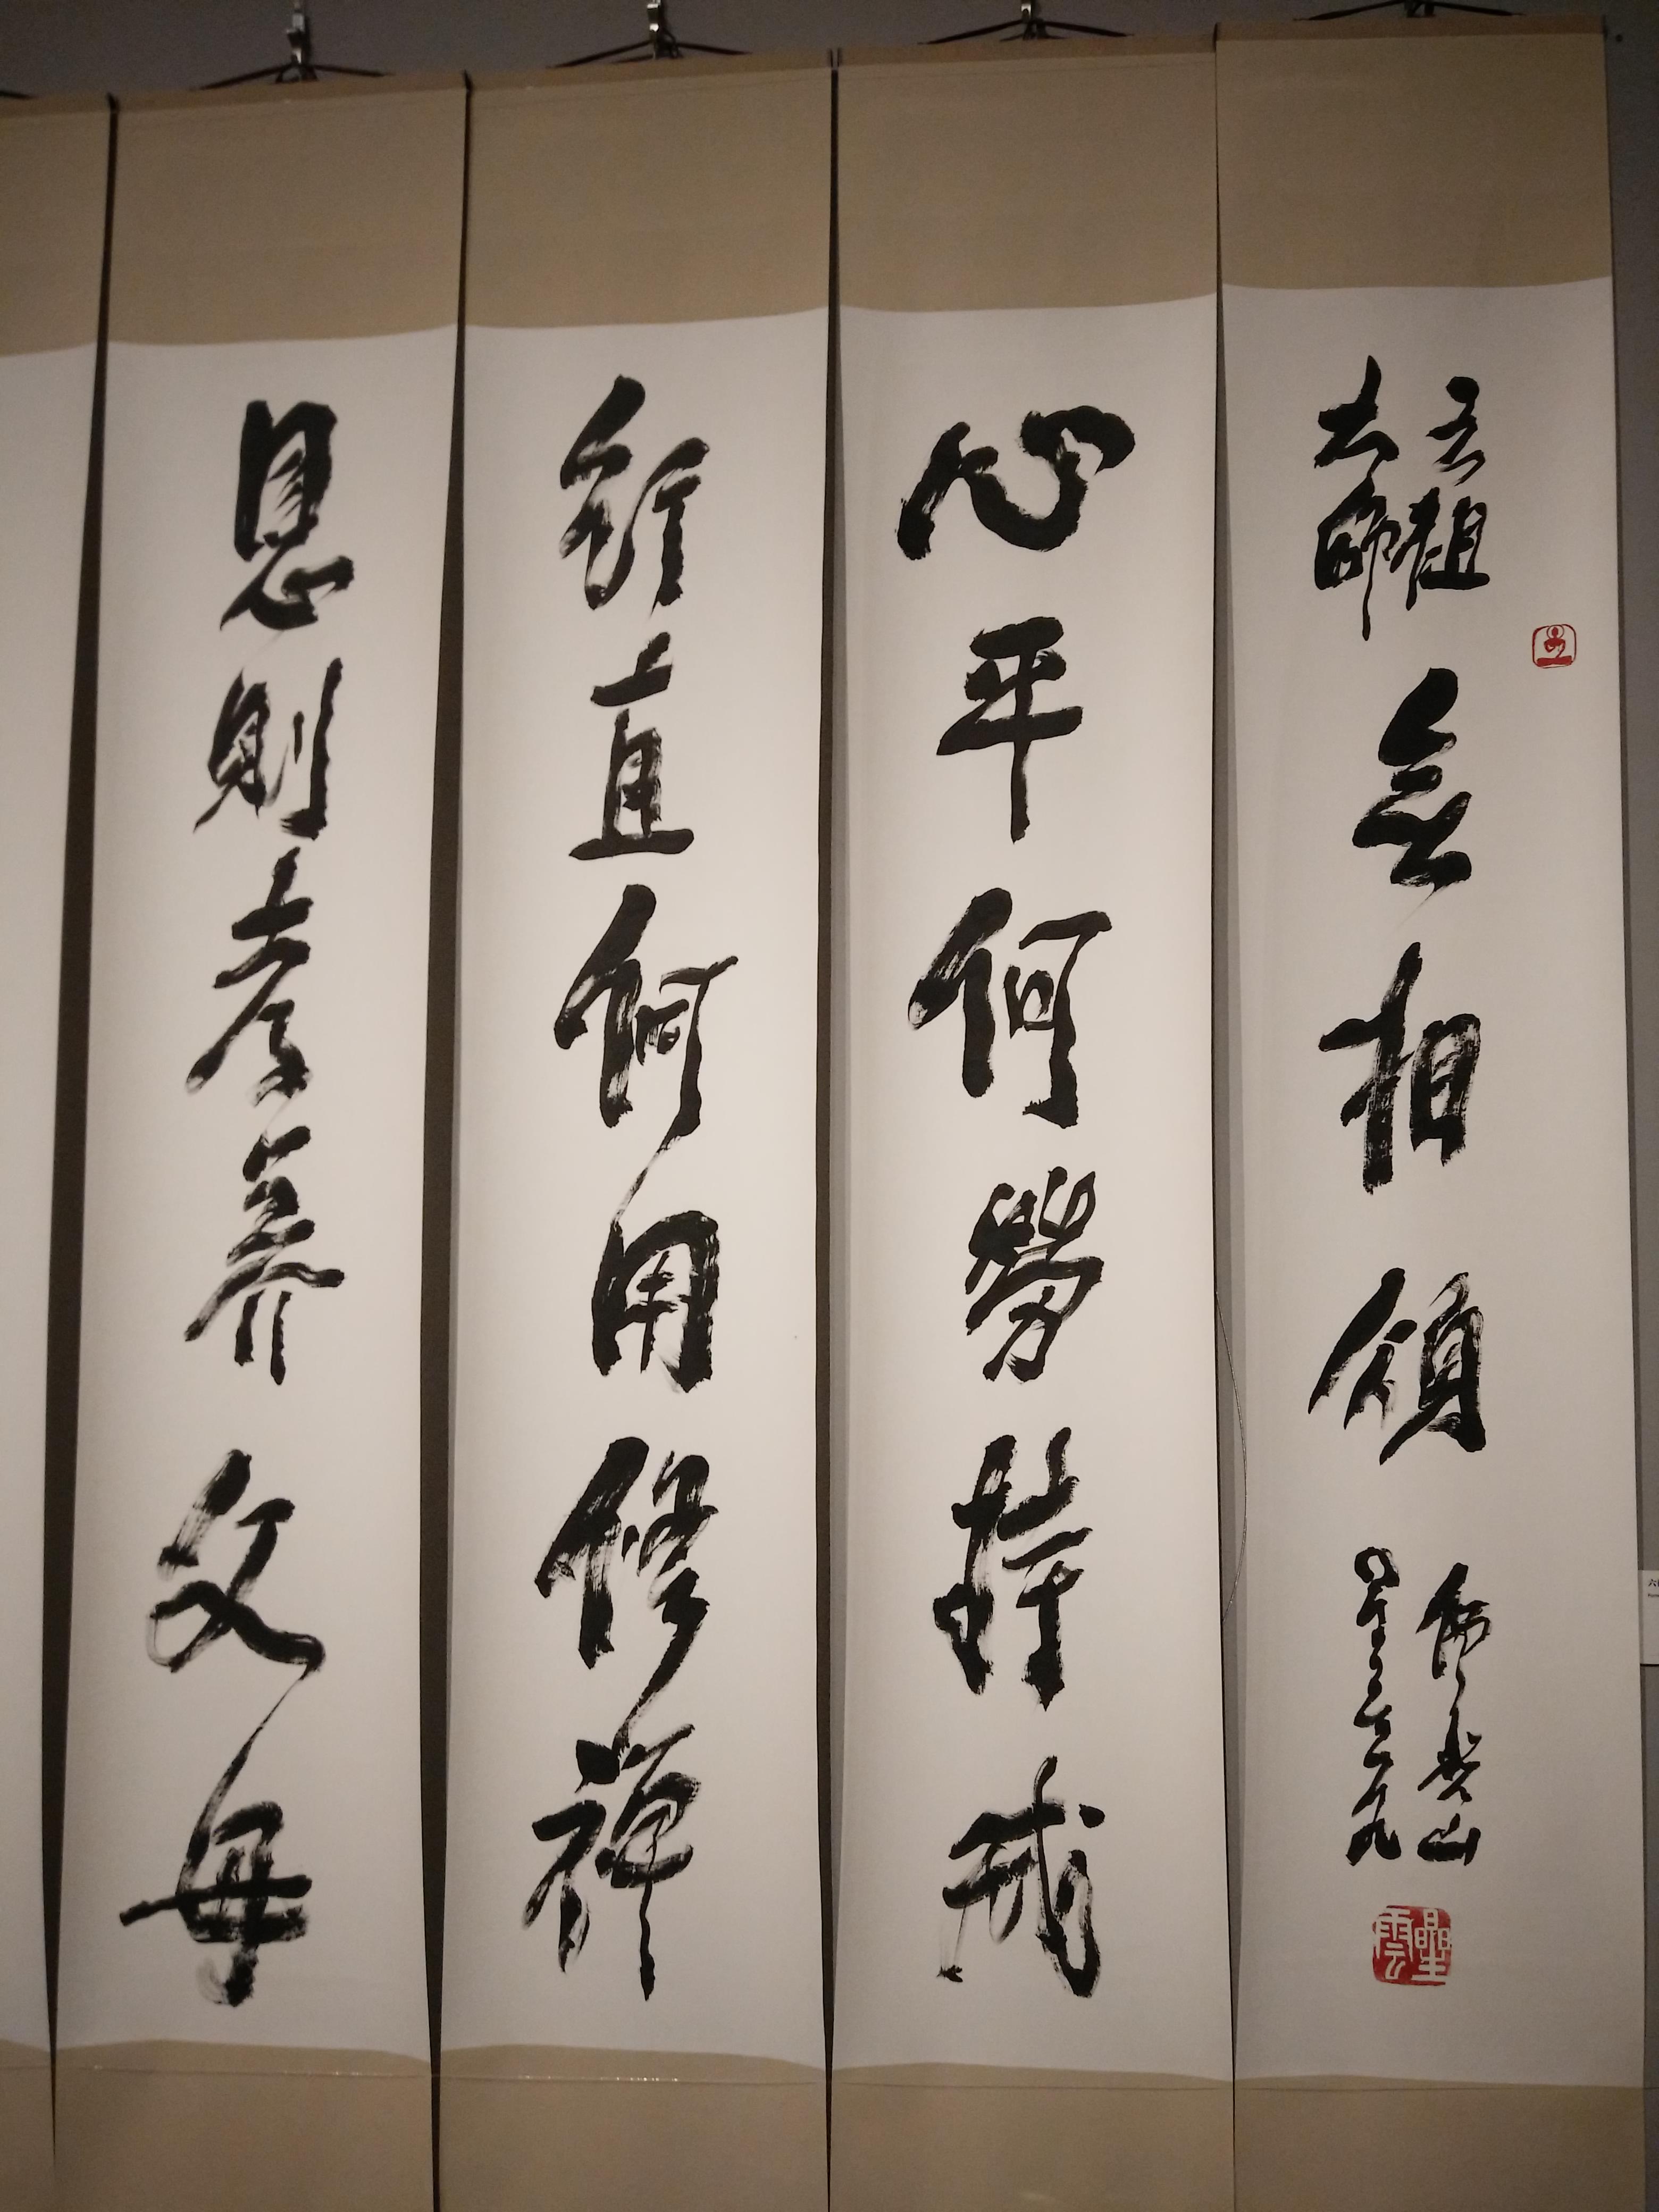 六祖
大師
無相頌
佛光山
星雲
星雲
心平何勞持戒
行直何用修禪
恩則孝養父母